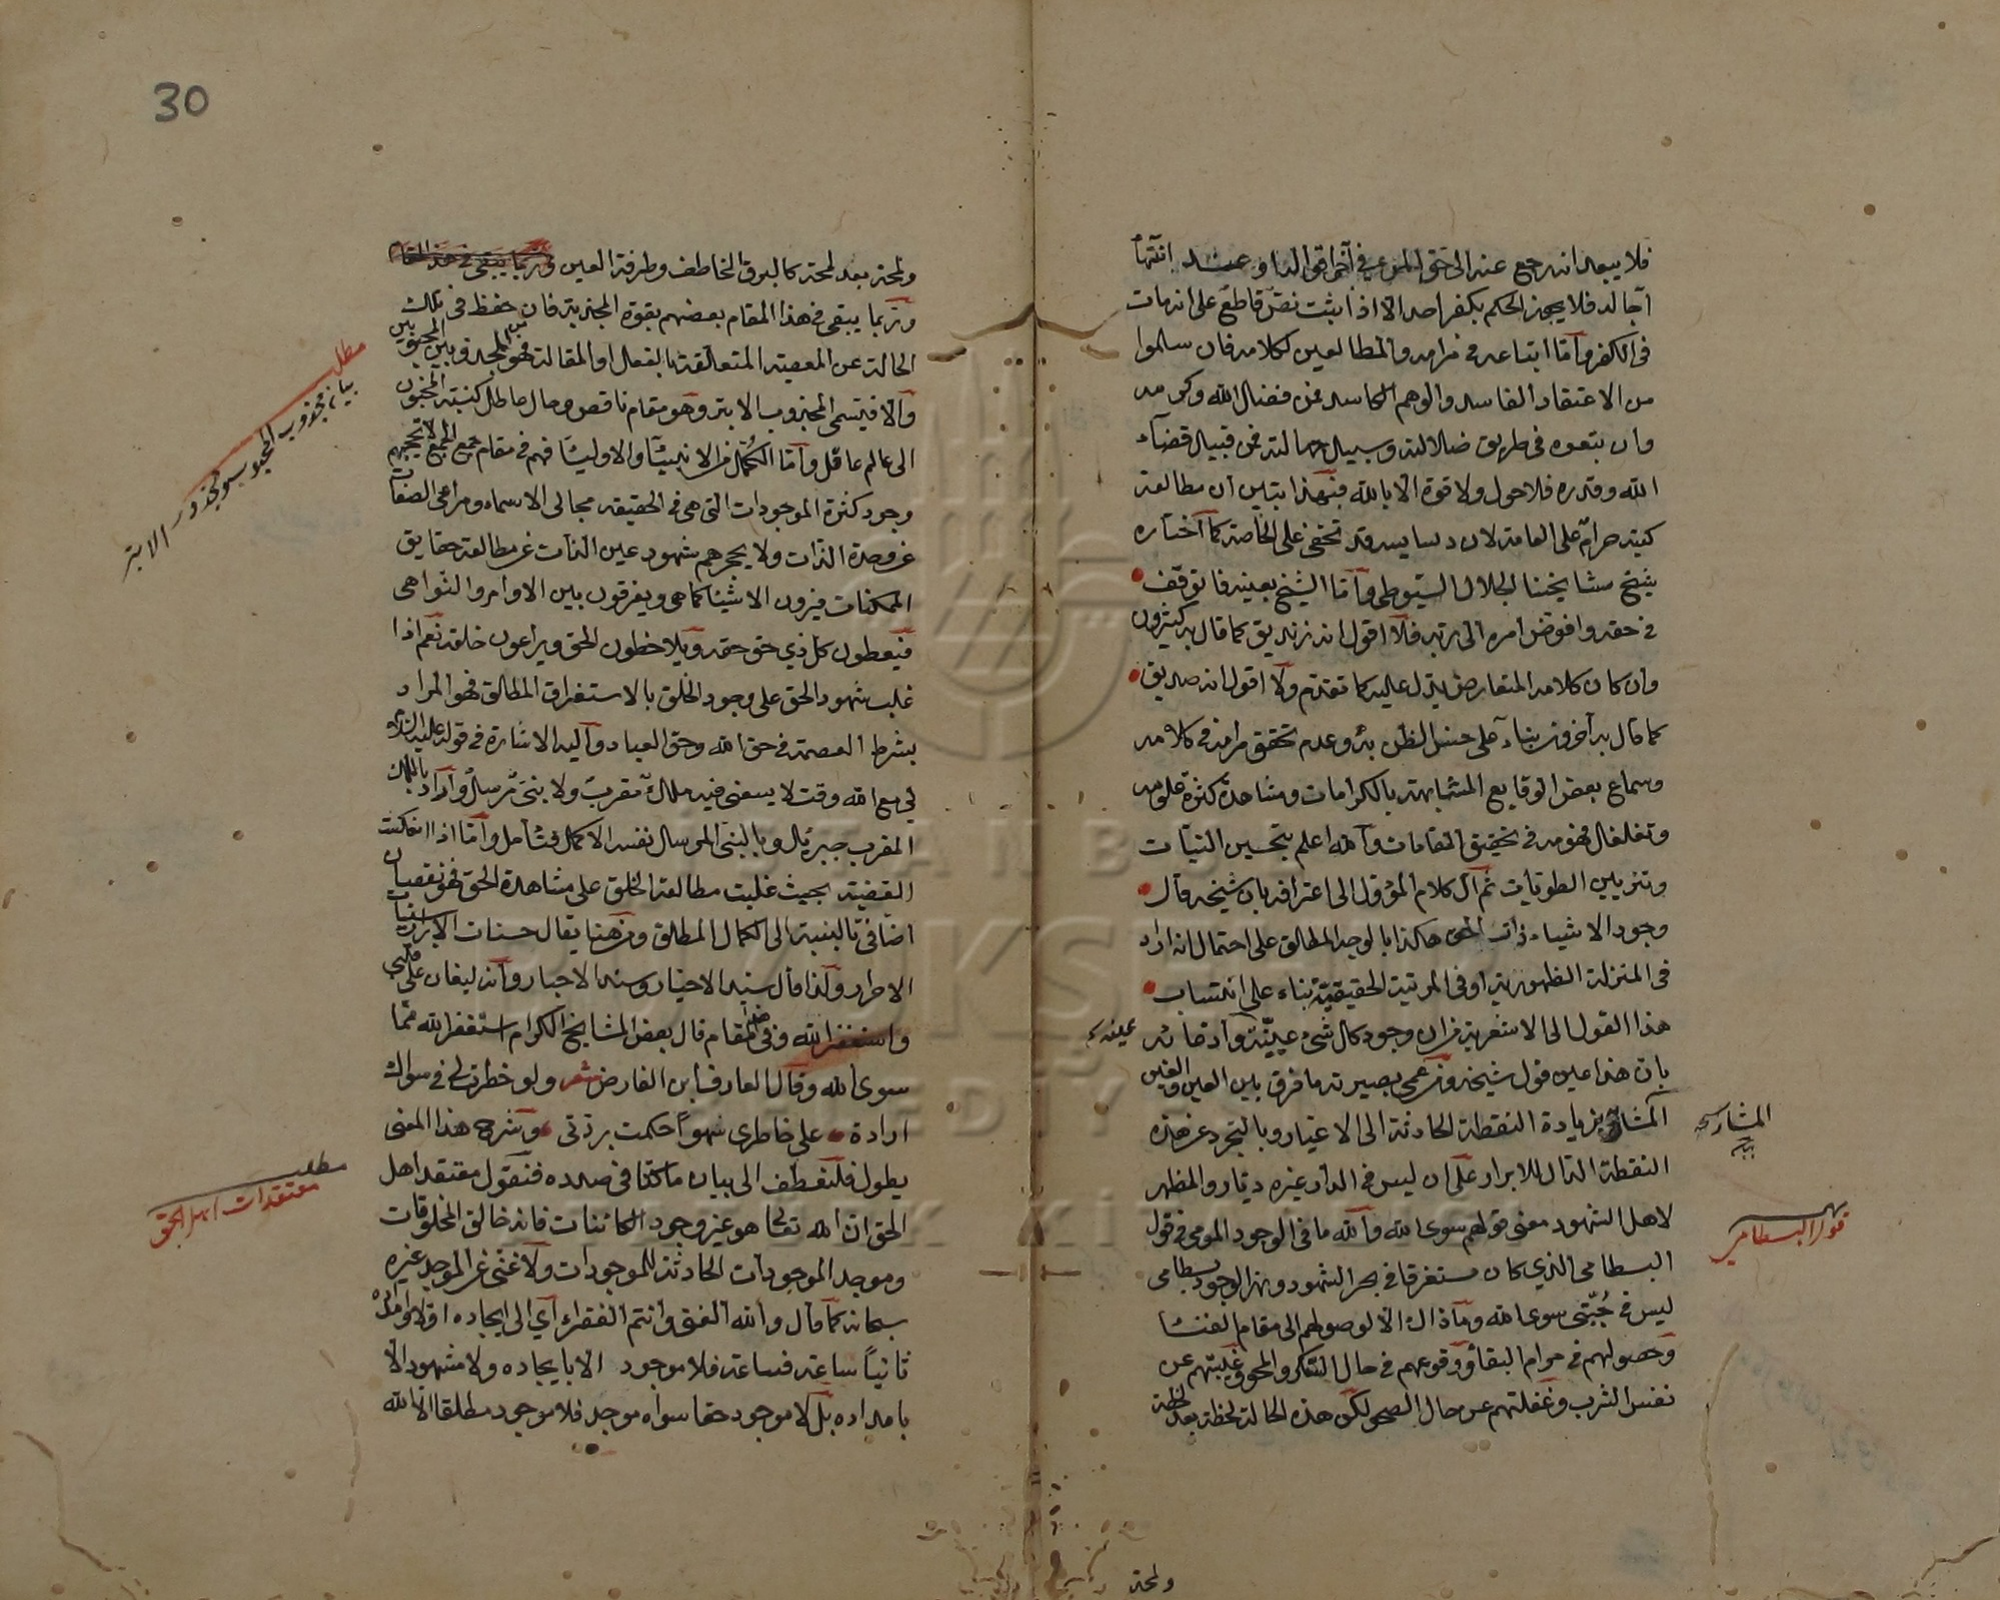 فلا يبعد انه رجع عنه الى حق المرعي في آخر اقواله او عند انتهاء
آجاله فلا يجوز الحكم بكفر احد الا اذا ثبت نص قاطع على انه مات
في الكفر وأما اتباعه في مرامه والمطالعين لكلامه فان سلموا
من الاعتقاد الفاسد والوهم الكاسد فمن فضل الله وكرمه
وان تبعوه في طريق ضلالته وسبيل جهالته فمن قبيل قضاء
الله وقدره فلا حول ولا قوة الا بالله فبهذا يتبين أن مطالعة
كتبه حرام على العامة لان دسايسه قد تخفى على الخاصة كما اختاره
شيخ مشايخنا الجلال السيوطي وأما الشيخ بعينه فاتوقف
في حقه وافوض امره الى ربه فلا اقول انه زنديق كما قال به كثيرون
وان كان كلامه المتعارض يدل عليه كما تقدم ولا اقول انه صديق
كما قال به آخرون بناء على حسن الظن به وعدم تحقق مرامه في كلامه
وسماع بعض الوقايع المتشابهة بالكرامات ومشاهدة كثرة علومه
وتغلغل فهومه في تحقيق المقامات والله اعلم بتحسين النيات
وتزيين الطويات ثم آل كلام المؤول الى اعترافه بان شيخه قال
وجود الاشياء ذات الحق هكذا بالوجه المطلق على احتمال انه اراد
في المنزلة الظهورية او في المرتبة الحقيقية بناء على انتساب
هذا القول الى الاشعرية من ان وجود كل شئ عينه وادعائه
بان هذا عين قول شيخه ومن عمى بصيرته ما فرق بين العين والغين
المشار بزيادة النقطة الحادثة الى الاغيار وبالتجرد عن هذه
النقطة الدال للابرار على ان ليس في الدار غيره ديار والمظهر
لاهل الشهود معنى قولهم سوى الله والله ما في الوجود المومى في قول
البسطامي الذي كان مستغرقا في بحر الشهود ونهر الوجود بسطامي
ليس في جبتي سوى الله وما ذاك الا لوصولهم الى مقام الفناء
وحصولهم في مرام البقاء ووقوعهم في حال السكر والمحو وغيبتهم عن
نفس الشرب وغفلتهم عن حال الصحو لكن هذه الحالة لحظة بعد لحظة
ولمحة
عينه
المشار
قول البسطامي
30
ولمحة بعد لمحة كالبرق الخاطف وطرفة العين وربما يبقى في هذا المقام
وربما يبقى في هذا المقام بعضهم بقوة الجذبة فان حفظ في تلك
الحالة عن المعصية المتعلقة بالفعال او المقالة فهو من المجذوبين المحبوبين
والا فيسمى المجذوب الابتر وهو مقام ناقص وحال عاطل كنسبة المجنون
الى عالم عاقل وأما الكمل من الانبياء والاولياء فهم في مقام جمع الجمع لا تحجبهم
وجود كثرة الموجودات التي هي في الحقيقة مجالي الاسماء ومرائي الصفات
عن وحدة الذات ولا يحجزهم شهود عين الذات عن مطالعة حقايق
الممكنات فيرون الاشياء كما هي ويفرقون بين الاوامر والنواهي
فيعطون كل ذي حق حقه ويلاحظون الحق ويراعون خلقه نعم اذا
غلب شهود الحق على وجود الخلق بالاستغراق المطلق فهو المراد
بشرط العصمة في حق الله وحق العباد واليه الاشارة في قوله عليه السلام
لي مع الله وقت لا يسعني فيه ملك مقرب ولا نبي مرسل واراد بالملك
المقرب جبريل وبالنبي المرسل نفسه الاكمل فتأمل وأما اذا انعكست
القضية بحيث غلبت مطالعة الخلق على مشاهدة الحق فهو نقصان
اضافي بالنسبة الى الكمال المطلق ومن هنا يقال حسنات الابرار سيئات
الاحرار ولذا قال سيد الاخيار وسند الاحبار وانه ليغان على قلبي
واستغفر الله وفي هذا المقام قال بعض المشايخ الكرام استغفر الله مما
سوى الله وقال العارف ابن الفارض شعر ولو خطرت لي في سواك
ارادة على خاطري سهوا حكمت بردتي وشرح هذا المعنى
يطول فلنعطف الى بيان ما كنا في صدده فنقول معتقد اهل
الحق ان الله تعالى هو غير وجود الكائنات فانه خالق المخلوقات
وموجد الموجودات الحادثة للموجودات ولا غنى عن الموجد غيره
سبحانه كما قال والله الغني وانتم الفقراء أي الى ايجاده اولا وامداده
ثانيا ساعة فساعة فلا موجود الا بايجاده ولا مشهود الا
بامداده بل لا موجود حقا سواه موجد فلا موجود مطلقا الا الله
مطلب
بيان مجذوب المحبوب ومجذوب الابتر
مطلب
معتقدات اهل الحق